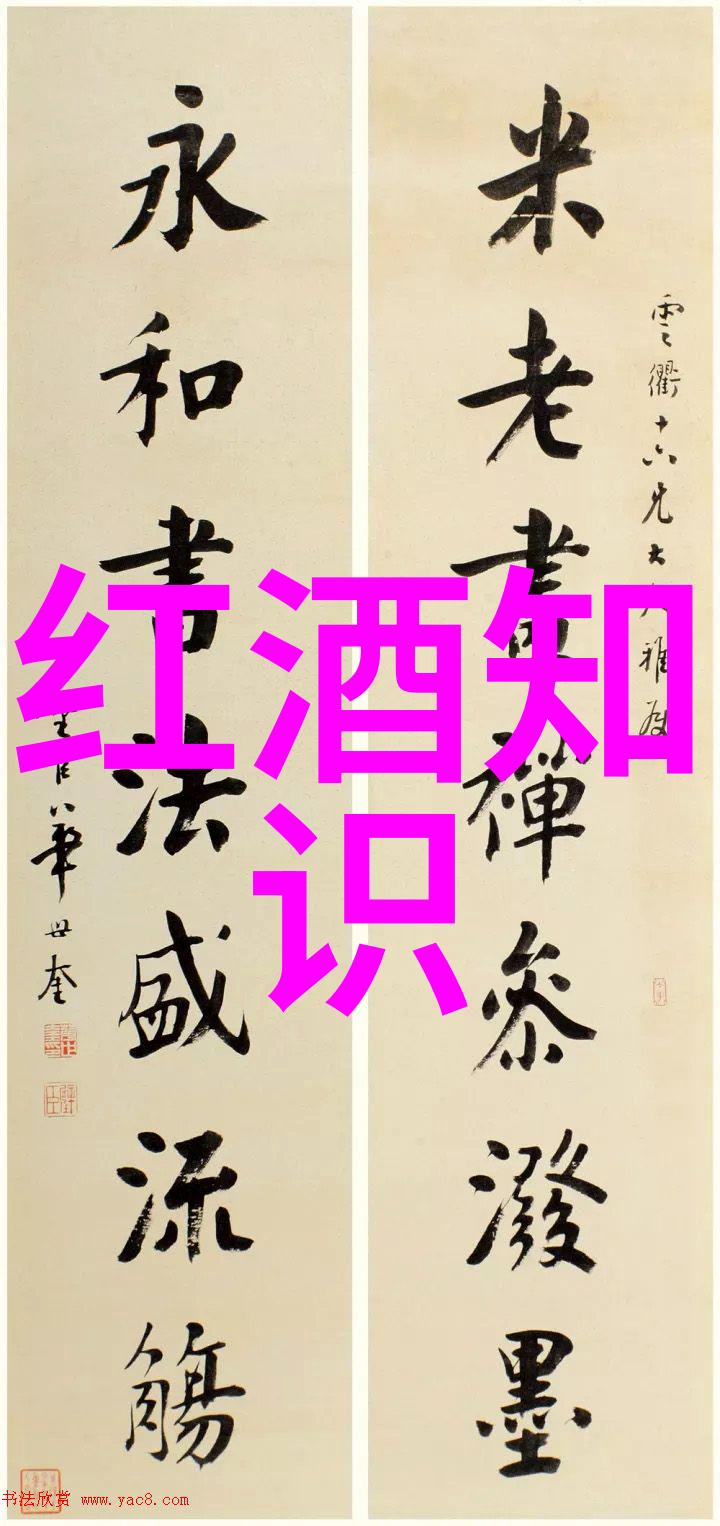 雲衢十六兄大人雅屬
米老畫禪參潑墨
永和書法盛流觴
華世奎
红酒知
识
书法欣赏 www.yac8.com